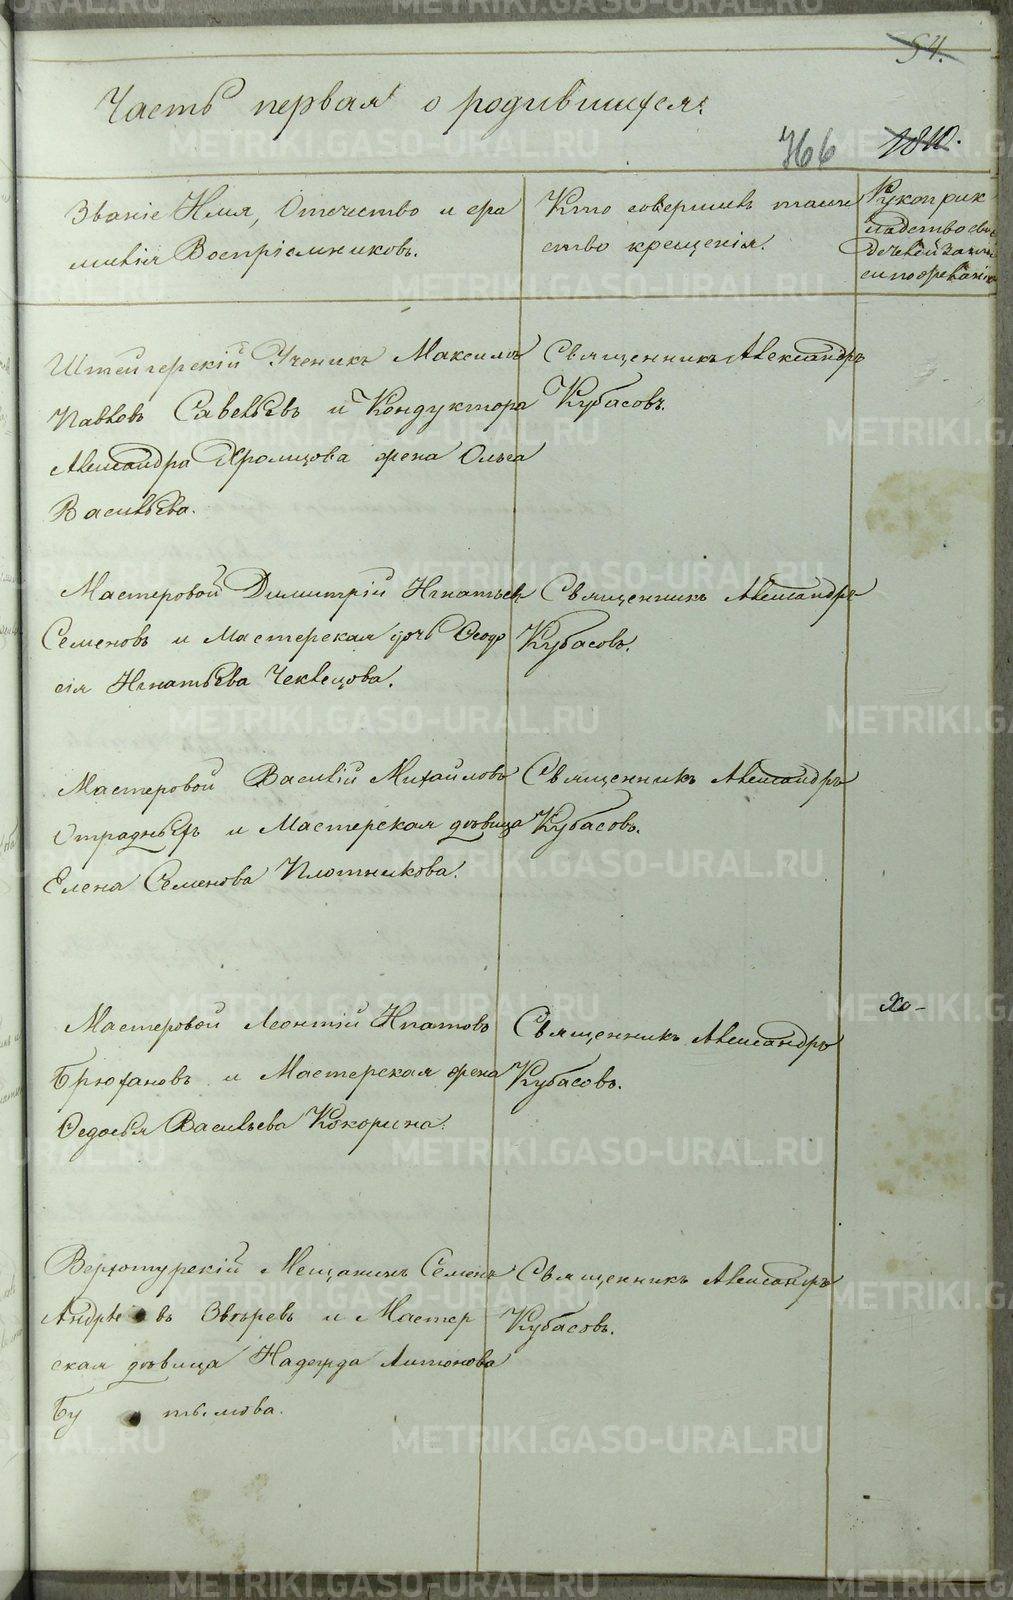 54.
Часть первая о родившихся.
766
Званіе Имя, Отечество и фа
милія Воспріемниковъ.
Кто совершилъ таин
ство крещенія.
Рукоприк
ладство сви
дѣтелей
Штейгерскій Ученикъ Максимъ
Павловъ Савельевъ и Кондуктора
Александра Хромцова жена Ольга
Васильева.
Священникъ Александръ
Кубасовъ.
Мастеровой Димитрій Игнатьевъ
Семеновъ и Мастерская дочь Ѳеодо
сія Игнатьева Чеклецова.
Священникъ Александръ
Кубасовъ.
Мастеровой Василій Михайловъ
Отрадныхъ и Мастерская дѣвица
Елена Семенова Плотникова.
Священникъ Александръ
Кубасовъ.
Мастеровой Леонтій Ипатовъ
Брюхановъ и Мастерская жена
Ѳедосья Васильева Кокорина.
Священникъ Александръ
Кубасовъ.
Хо-
Верхотурскій Мещанинъ Семенъ
Андреевъ Звѣревъ и Мастер
ская дѣвица Надежда Антонова
Бу тылова.
Священникъ Александръ
Кубасовъ.
METRIKI.GASO-URAL.RU